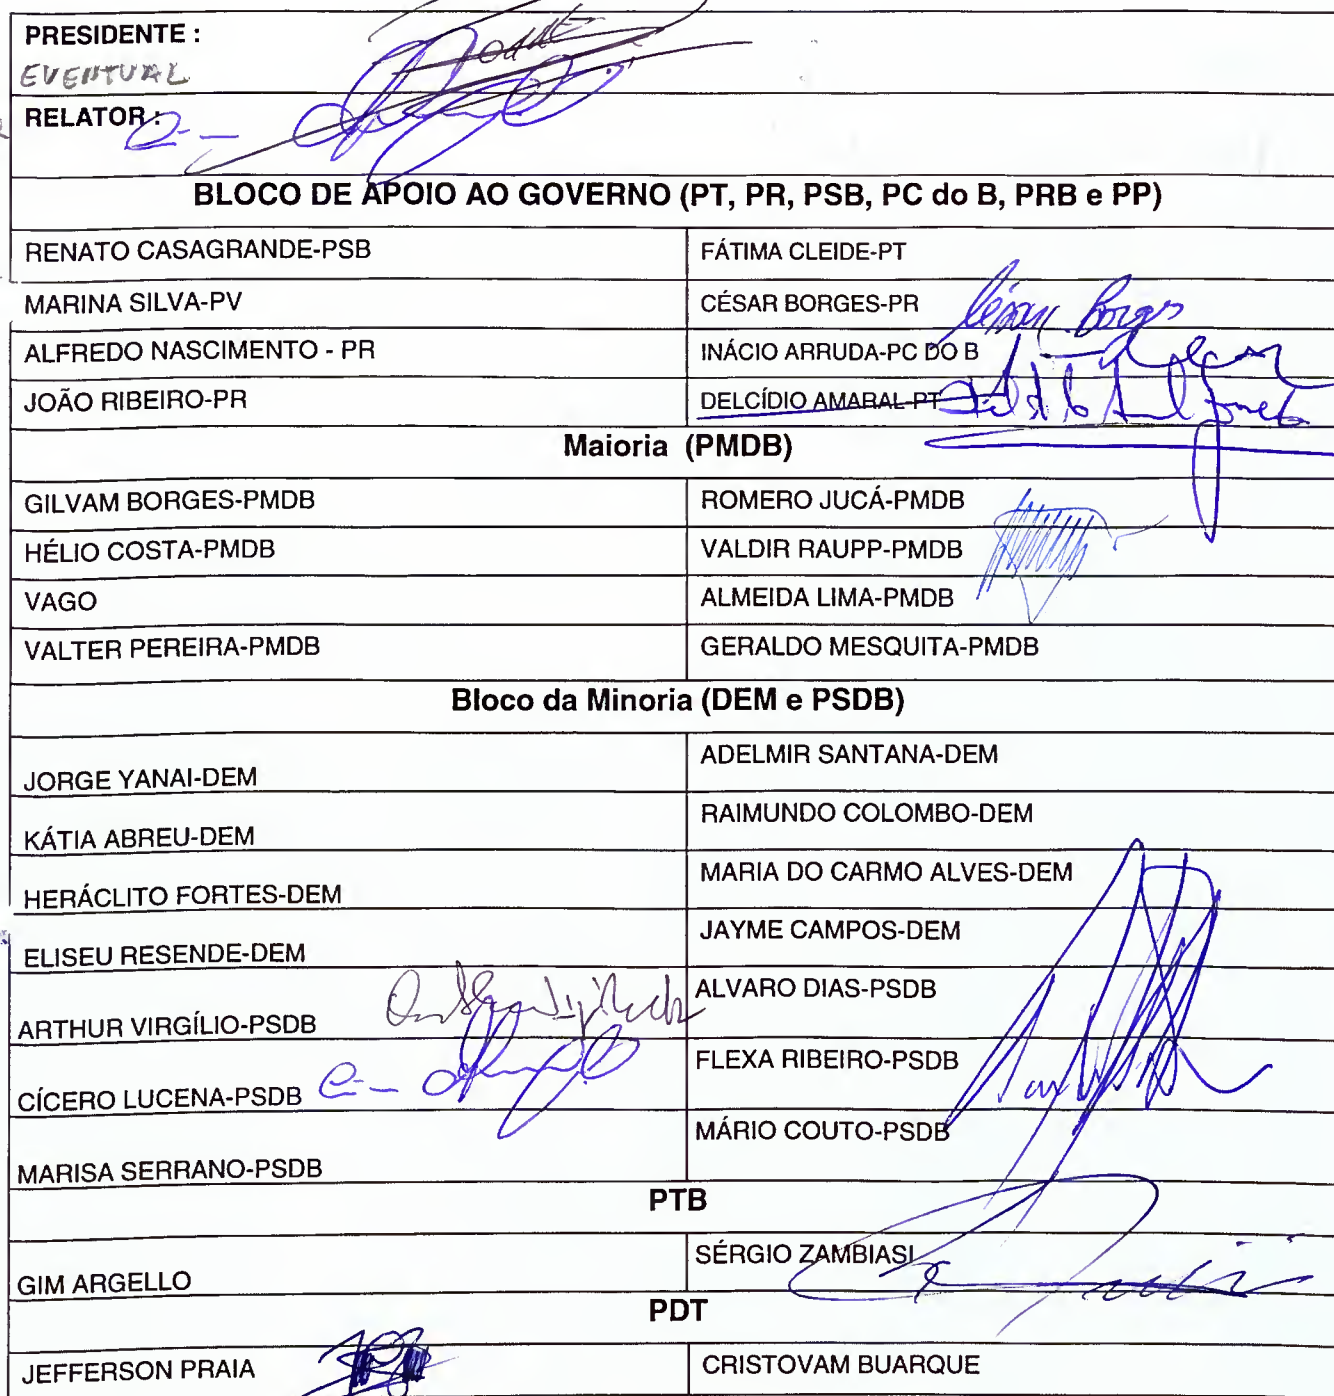 PRESIDENTE :
EVENTUAL
RELATOR :
BLOCO DE APOIO AO GOVERNO (PT, PR, PSB, PC do B, PRB e PP)
RENATO CASAGRANDE-PSB
FÁTIMA CLEIDE-PT
MARINA SILVA-PV
CÉSAR BORGES-PR César Borges
ALFREDO NASCIMENTO - PR
INÁCIO ARRUDA-PC DO B
JOÃO RIBEIRO-PR
DELCÍDIO AMARAL-PT
Maioria (PMDB)
GILVAM BORGES-PMDB
ROMERO JUCÁ-PMDB
HÉLIO COSTA-PMDB
VALDIR RAUPP-PMDB
VAGO
ALMEIDA LIMA-PMDB
VALTER PEREIRA-PMDB
GERALDO MESQUITA-PMDB
Bloco da Minoria (DEM e PSDB)
JORGE YANAI-DEM
ADELMIR SANTANA-DEM
KÁTIA ABREU-DEM
RAIMUNDO COLOMBO-DEM
HERÁCLITO FORTES-DEM
MARIA DO CARMO ALVES-DEM
ELISEU RESENDE-DEM
JAYME CAMPOS-DEM
ARTHUR VIRGÍLIO-PSDB
ALVARO DIAS-PSDB
CÍCERO LUCENA-PSDB
FLEXA RIBEIRO-PSDB
MARISA SERRANO-PSDB
MÁRIO COUTO-PSDB
PTB
GIM ARGELLO
SÉRGIO ZAMBIASI
PDT
JEFFERSON PRAIA
CRISTOVAM BUARQUE